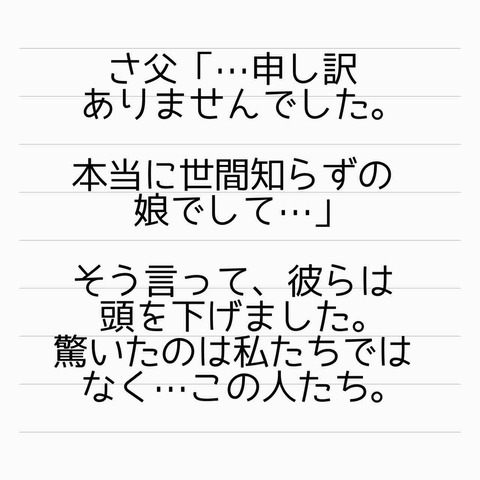 さ父「…申し訳
ありませんでした。
本当に世間知らずの
娘でして…」
そう言って、彼らは
頭を下げました。
驚いたのは私たちでは
なく…この人たち。